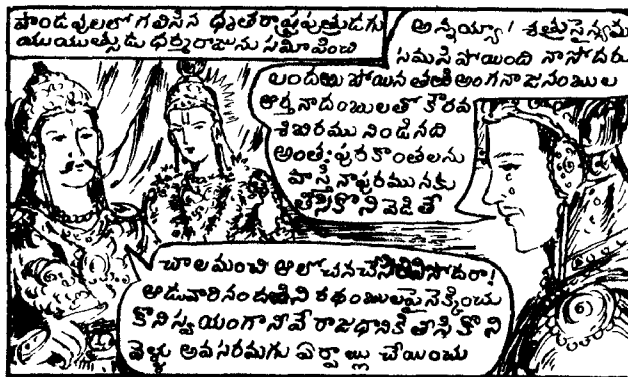 పాండవులలో గలిసిన ధృతరాష్ట్రపుత్రుడగు
యుయుత్సుడు ధర్మరాజును సమీపించి
అన్నయ్యా! శత్రుసైన్యము
సమసి పోయింది నాసోదరు
లందఱుపోయిన తఱి అంగనాజనంబుల
ఆర్తనాదంబులతో కౌరవ
శిబిరము నిండినది
అంతఃపురకాంతలను
హస్తినాపురమునకు
తీసికొనివెడితే
చాలమంచి ఆలోచన సోదరా!
ఆడువారినందఱిని రథంబులపైనెక్కించు
కొని స్వయంగా నీవే రాజధానికి తీసికొని
వెళ్ళు అవసరమగు ఏర్పాట్లు చేయించు